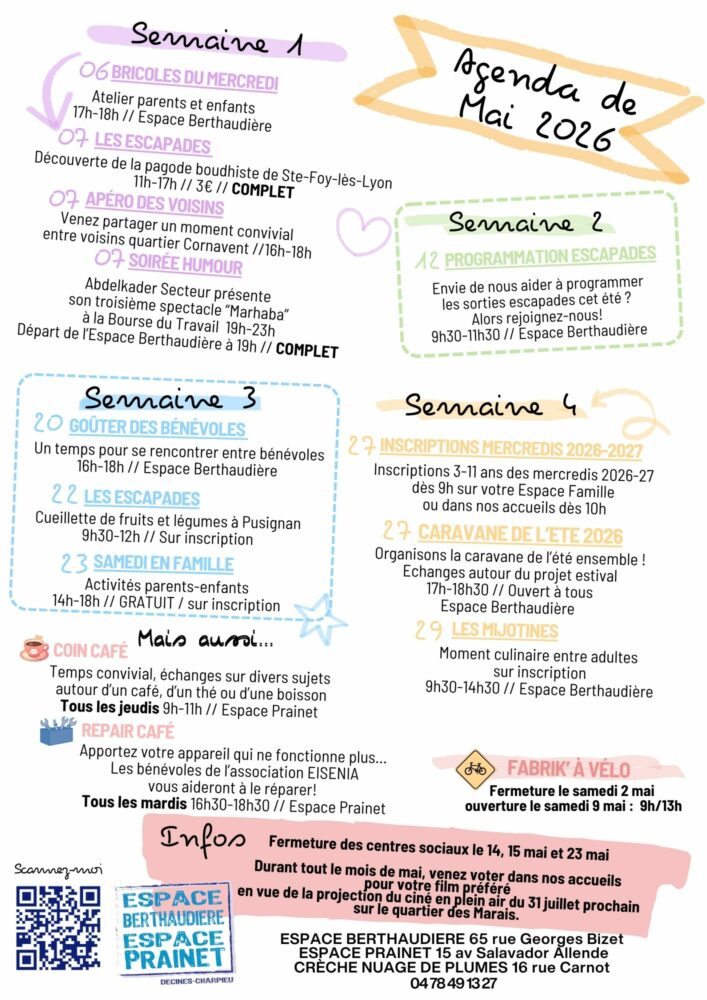 Semaine 1
06 BRICOLES DU MERCREDI
Atelier parents et enfants
17h-18h // Espace Berthaudière
07 LES ESCAPADES
Découverte de la pagode boudhiste de Ste-Foy-lès-Lyon
11h-17h // 3€ // COMPLET
07 APÉRO DES VOISINS
Venez partager un moment convivial
entre voisins quartier Cornavent //16h-18h
07 SOIRÉE HUMOUR
Abdelkader Secteur présente
son troisième spectacle “Marhaba”
à la Bourse du Travail 19h-23h
Départ de l'Espace Berthaudière à 19h // COMPLET
Agenda de
Mai 2026
Semaine 2
12 PROGRAMMATION ESCAPADES
Envie de nous aider à programmer
les sorties escapades cet été ?
Alors rejoignez-nous!
9h30-11h30 // Espace Berthaudière
Semaine 3
20 GOÛTER DES BÉNÉVOLES
Un temps pour se rencontrer entre bénévoles
16h-18h // Espace Berthaudière
22 LES ESCAPADES
Cueillette de fruits et légumes à Pusignan
9h30-12h // Sur inscription
23 SAMEDI EN FAMILLE
Activités parents-enfants
14h-18h // GRATUIT / sur inscription
Semaine 4
27 INSCRIPTIONS MERCREDIS 2026-2027
Inscriptions 3-11 ans des mercredis 2026-27
dès 9h sur votre Espace Famille
ou dans nos accueils dès 10h
27 CARAVANE DE L'ETE 2026
Organisons la caravane de l'été ensemble !
Echanges autour du projet estival
17h-18h30 // Ouvert à tous
Espace Berthaudière
29 LES MIJOTINES
Moment culinaire entre adultes
sur inscription
9h30-14h30 // Espace Berthaudière
Mais aussi...
COIN CAFÉ
Temps convivial, échanges sur divers sujets
autour d'un café, d'un thé ou d'une boisson
Tous les jeudis 9h-11h // Espace Prainet
REPAIR CAFÉ
Apportez votre appareil qui ne fonctionne plus...
Les bénévoles de l'association EISENIA
vous aideront à le réparer!
Tous les mardis 16h30-18h30 // Espace Prainet
FABRIK' À VÉLO
Fermeture le samedi 2 mai
ouverture le samedi 9 mai : 9h/13h
Infos
Fermeture des centres sociaux le 14, 15 mai et 23 mai
Durant tout le mois de mai, venez voter dans nos accueils
pour votre film préféré
en vue de la projection du ciné en plein air du 31 juillet prochain
sur le quartier des Marais.
Scannez-moi
ESPACE
BERTHAUDIERE
ESPACE
PRAINET
DECINES-CHARPIEU
ESPACE BERTHAUDIERE 65 rue Georges Bizet
ESPACE PRAINET 15 av Salavador Allende
CRÈCHE NUAGE DE PLUMES 16 rue Carnot
0478491327